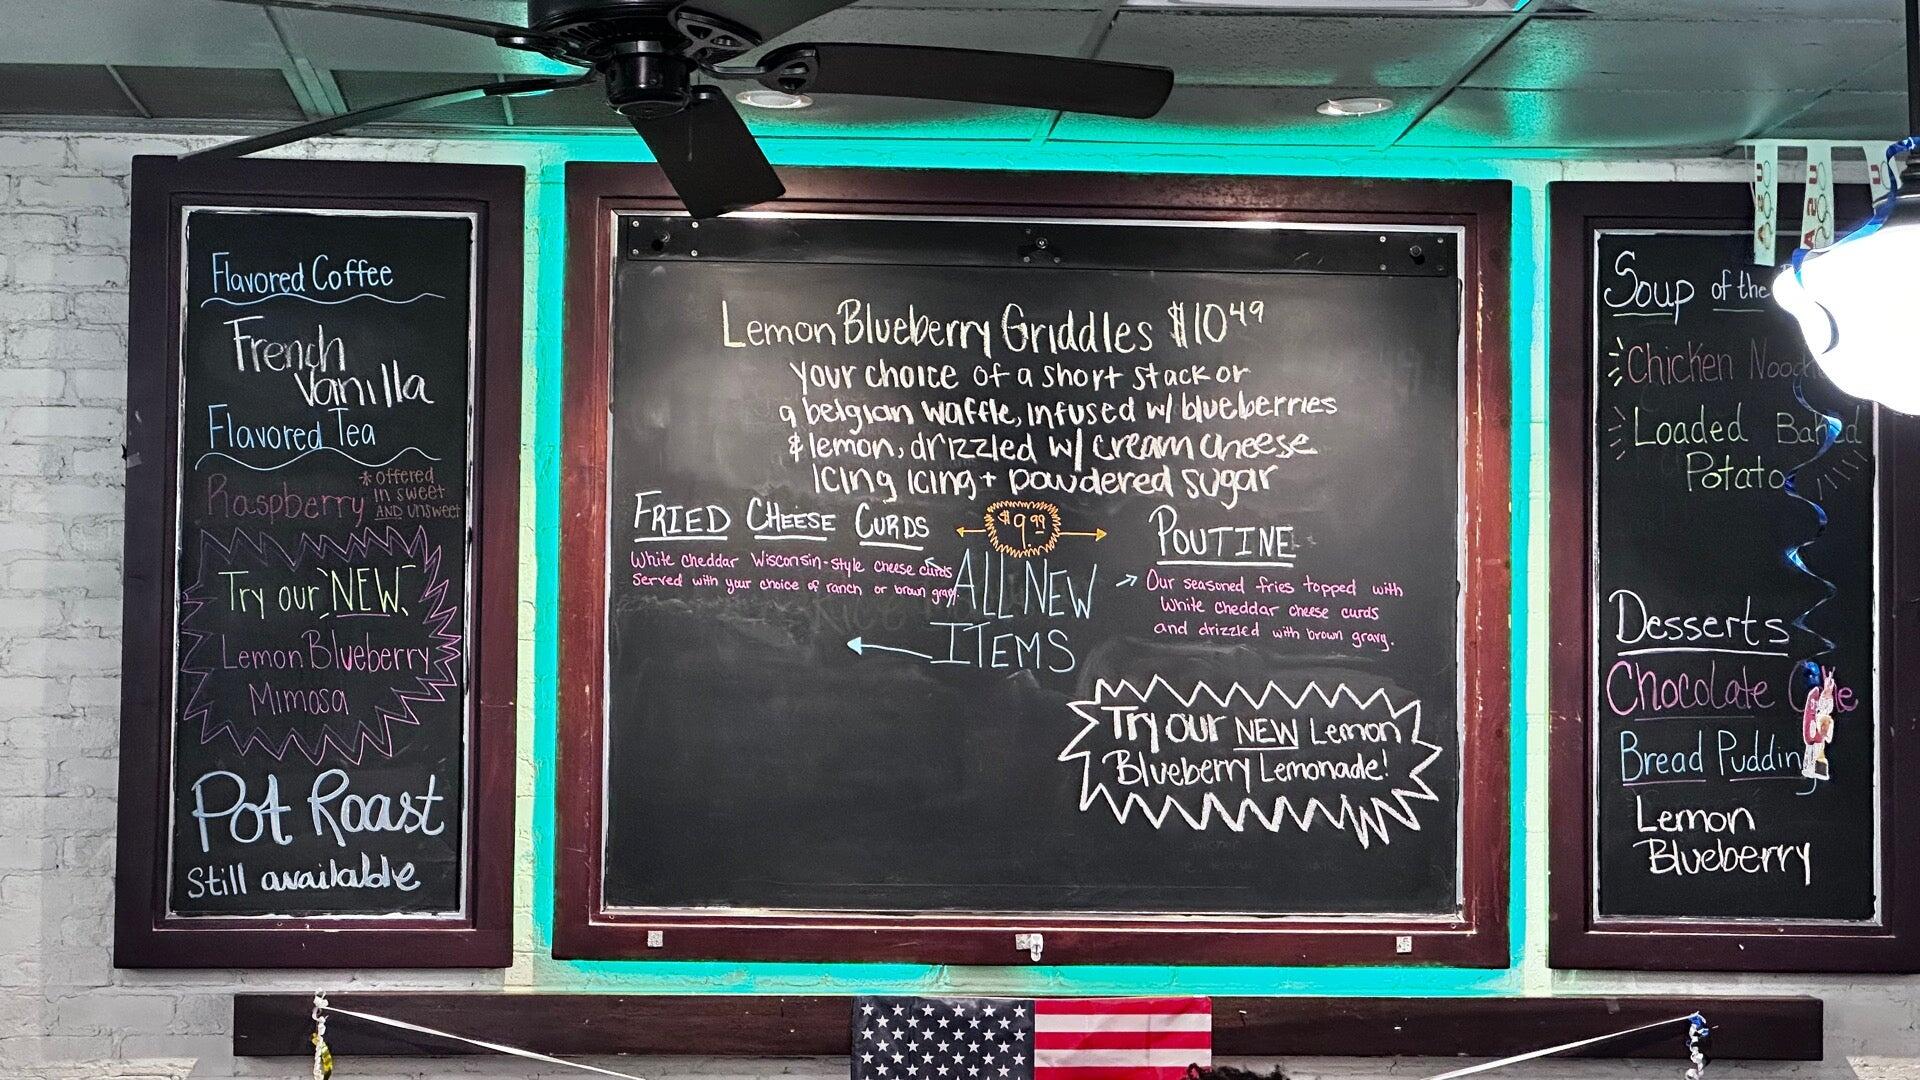 Flavored Coffee
French
Vanilla
Flavored Tea
Raspberry
*offered
in sweet
AND unsweet
Try our NEW
Lemon Blueberry
Mimosa
Pot Roast
Still available
Lemon Blueberry Griddles $10.49
your choice of a short stack or
a belgian waffle, infused w/ blueberries
& lemon, drizzled w/ cream cheese
icing icing + powdered sugar
FRIED CHEESE CURDS
White cheddar Wisconsin-style cheese curds
Served with your choice of ranch or brown gravy.
$9.99
ALL NEW
ITEMS
POUTINE
Our seasoned fries topped with
White cheddar cheese curds
and drizzled with brown gravy.
Try our NEW Lemon
Blueberry Lemonade!
Soup of the
Chicken
Loaded Baked
Potato
Desserts
Chocolate
Bread Pudding
Lemon
Blueberry
USA
USA
U